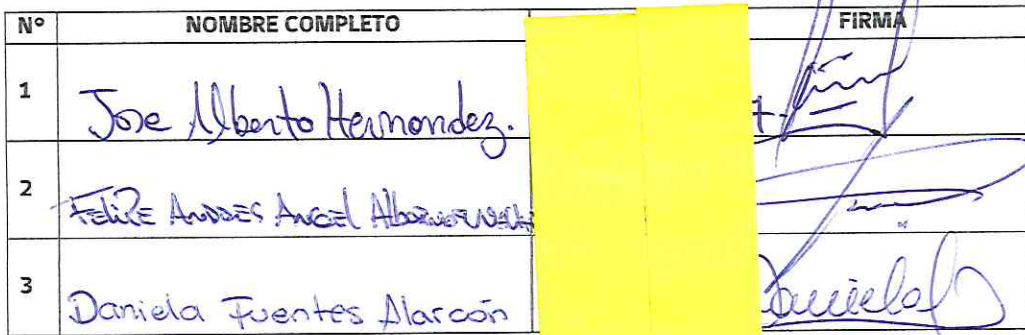 Nº NOMBRE COMPLETO FIRMA
1 Jose Alberto Hernandez.
2 FELIPE ANDRES ANGEL
3 Daniela Fuentes Alarcón Daniela